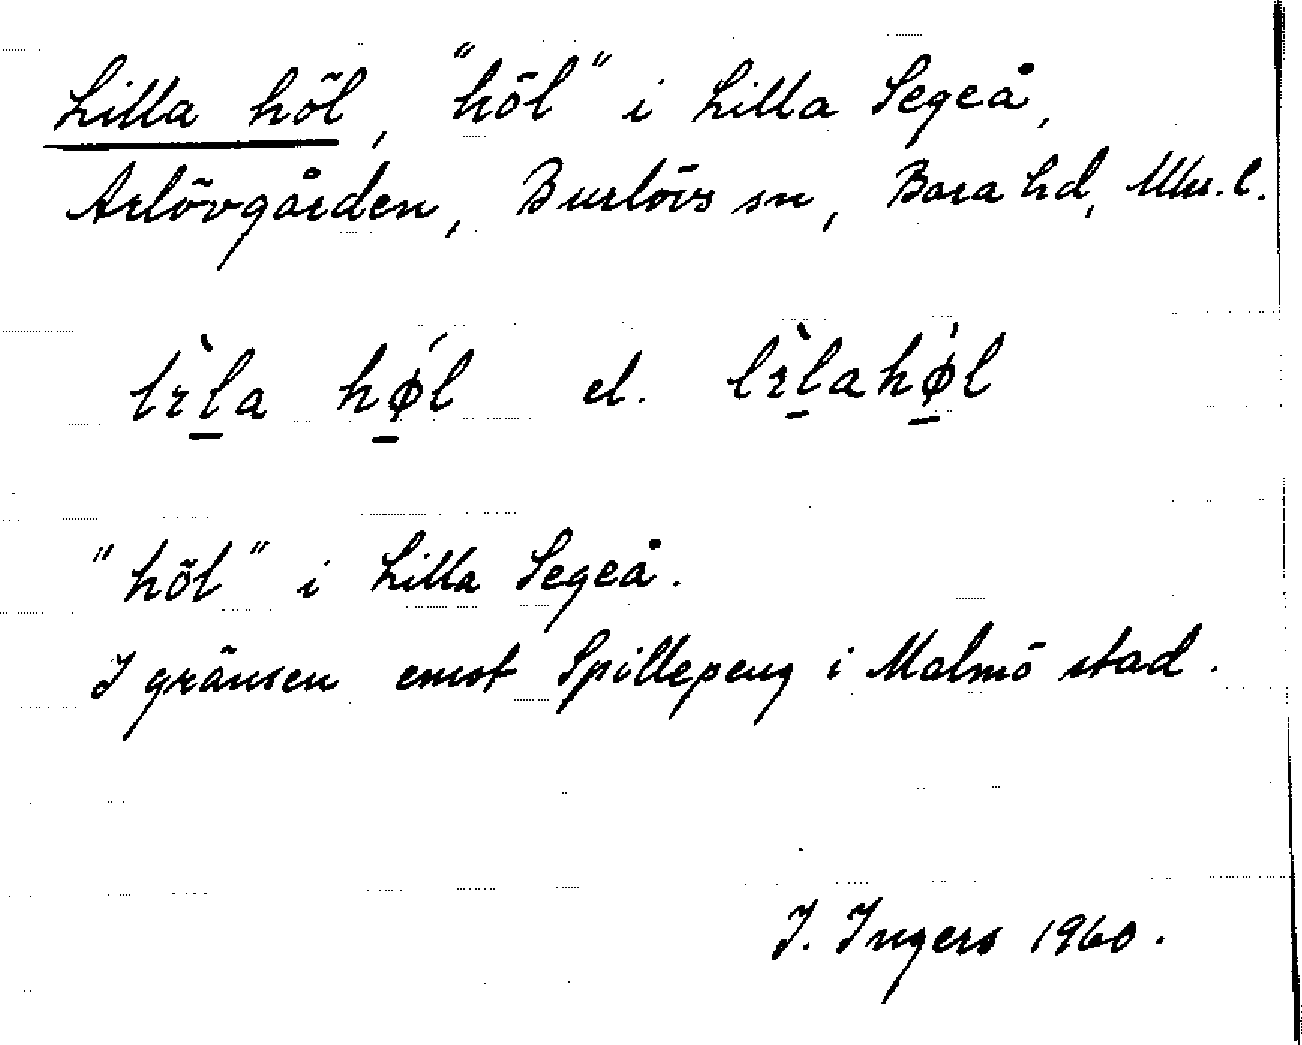 Lilla höl, "höl" i Lilla Segeå,
Arlövgården, Burlövs sn, Bara hd, Mlm. l.
lɪ̀l̲a hǿ̲l el. lɪ̀l̲ahǿ̲l
"höl" i Lilla Segeå.
I gränsen emot Spillepeng i Malmö stad.
I. Ingers 1960.